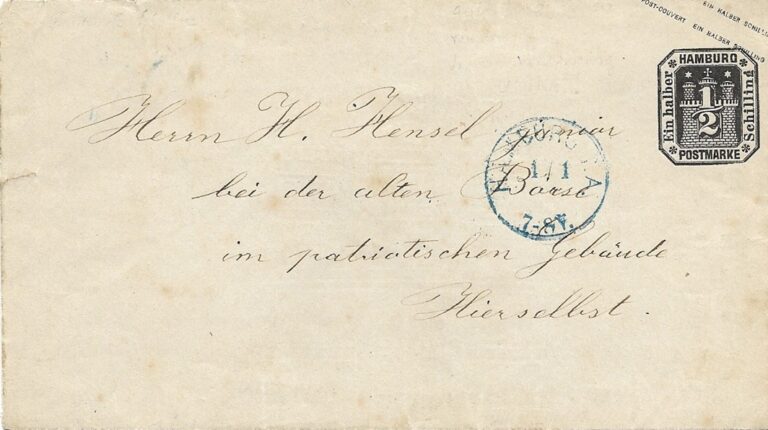 EIN HALBER SCHILLING
POST-COUVERT EIN HALBER SCHILLING
HAMBURG
Ein halber
1/2
Schilling
POSTMARKE
Herrn H. Hensel junior
bei der alten Börse
im patriotischen Gebäude
Hierselbst.
HAMBURG I.A
1/1
7-8V.